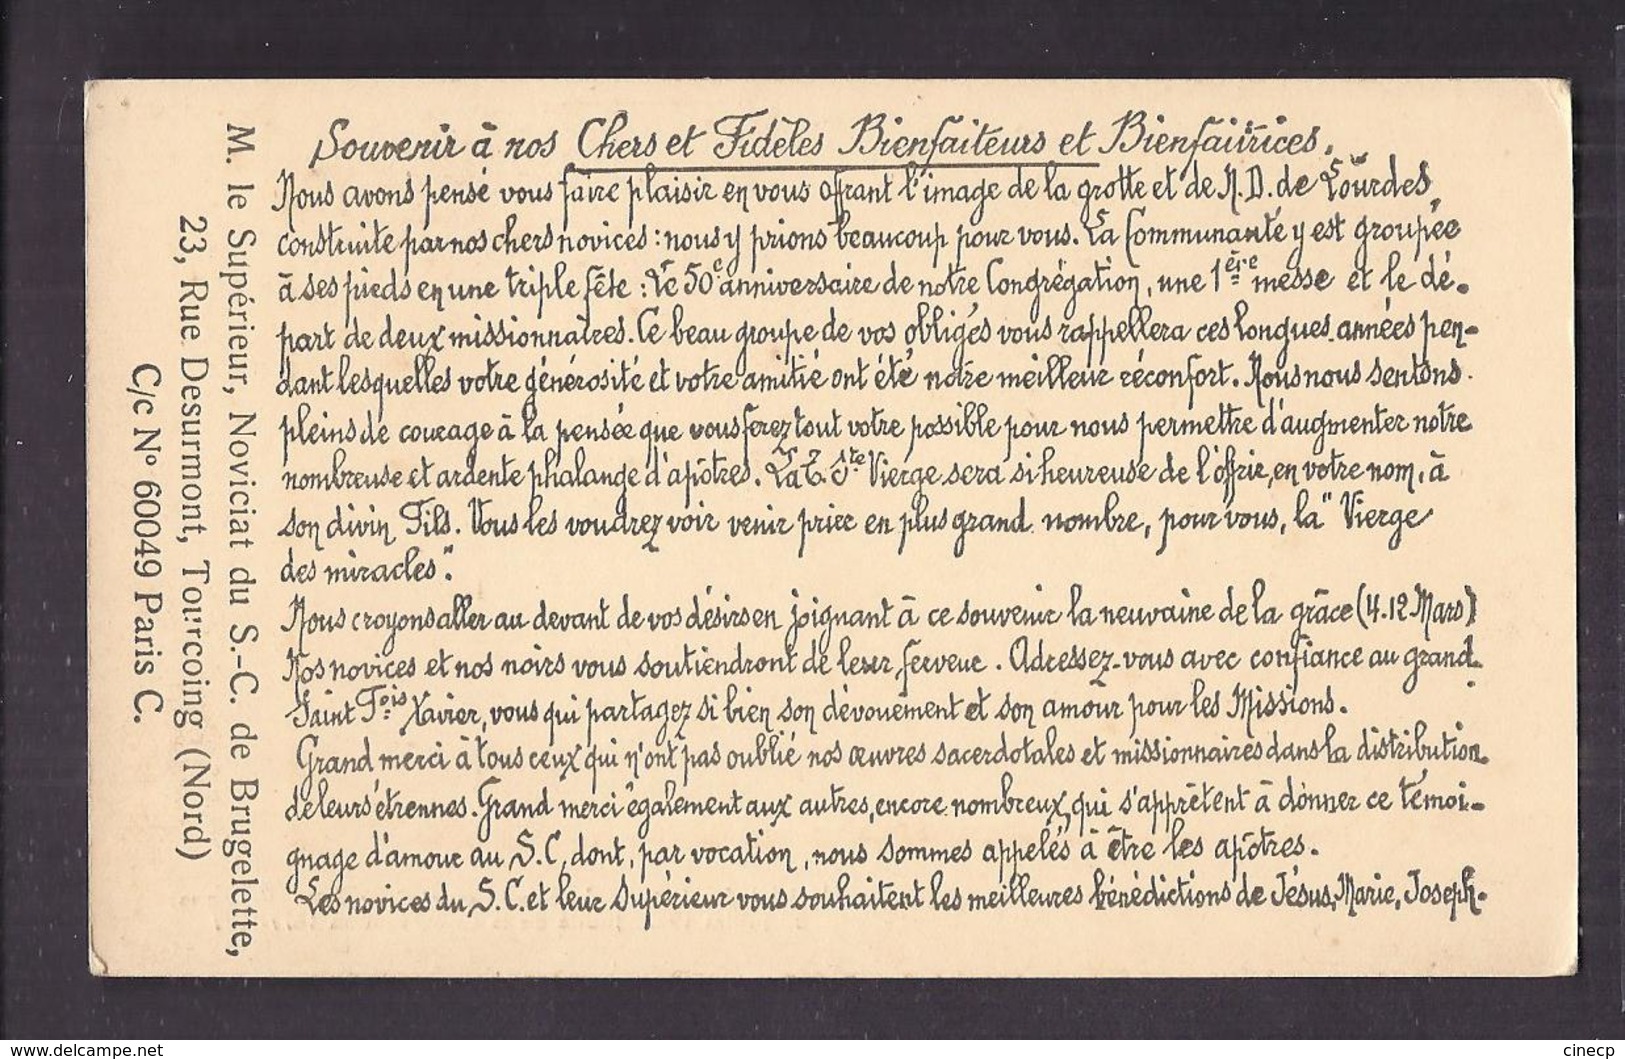 Souvenir à nos Chers et Fidèles Bienfaiteurs et Bienfaitrices.
Nous avons pensé vous faire plaisir en vous offrant l'image de la grotte et de N.D. de Lourdes,
construite par nos chers novices : nous y prions beaucoup pour vous. La Communauté y est groupée
à ses pieds en une triple fête : le 50e anniversaire de notre Congrégation, une 1ère messe et le dé-
part de deux missionnaires. Ce beau groupe de vos obligés vous rappellera ces longues années pen-
dant lesquelles votre générosité et votre amitié ont été notre meilleur réconfort. Nous nous sentons
pleins de courage à la pensée que vous ferez tout votre possible pour nous permettre d'augmenter notre
nombreuse et ardente phalange d'apôtres. La T. Ste Vierge sera si heureuse de l'offrir, en votre nom, à
son divin Fils. Vous les voudrez voir venir prier en plus grand nombre, pour vous, la "Vierge
des miracles".
Nous croyons aller au devant de vos désirs en joignant à ce souvenir la neuvaine de la grâce (4-12 Mars)
Nos novices et nos noirs vous soutiendront de leur ferveur. Adressez-vous avec confiance au grand
Saint Fois Xavier, vous qui partagez si bien son dévouement et son amour pour les Missions.
Grand merci à tous ceux qui n'ont pas oublié nos œuvres sacerdotales et missionnaires dans la distribution
de leurs étrennes. Grand merci également aux autres, encore nombreux, qui s'apprêtent à donner ce témoi-
gnage d'amour au S.C, dont, par vocation, nous sommes appelés à être les apôtres.
Les novices du S.C. et leur Supérieur vous souhaitent les meilleures bénédictions de Jésus, Marie, Joseph.
M. le Supérieur, Noviciat du S.-C. de Brugelette,
23, Rue Desurmont, Tourcoing (Nord)
C/c N° 60049 Paris C.
www.delcampe.net
cinecp